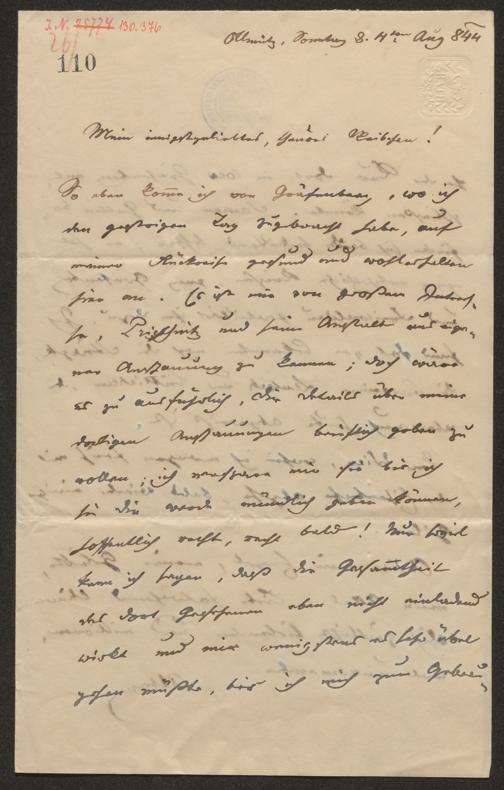 I. N. 25774 130.376
26/
110
Ollmütz, Sonntag d. 4ten Aug 844
Mein innigstgeliebtes, theures Weibchen!
So eben komme ich von Gräfenberg, wo ich
den gestrigen Tag zugebracht habe, auf
meiner Rückreise gesund und wohlerhalten
hier an. Es ist mir von großem Interes-
se, Prießnitz und seine Anstalt aus eige-
ner Anschauung zu kennen; doch wäre
es zu ausführlich, die Details über meine
dortigen Anschauungen brieflich geben zu
wollen; ich verspare mir sie bis ich
sie dir werde mündlich geben können,
hoffentlich recht, recht bald! Nur soviel
kann ich sagen, daß die Gesammtheit
des dort Gesehenen eben nicht einladend
wirkt und mir wenigstens es sehr übel
gehen müßte, bis ich mich zum Gebrau-